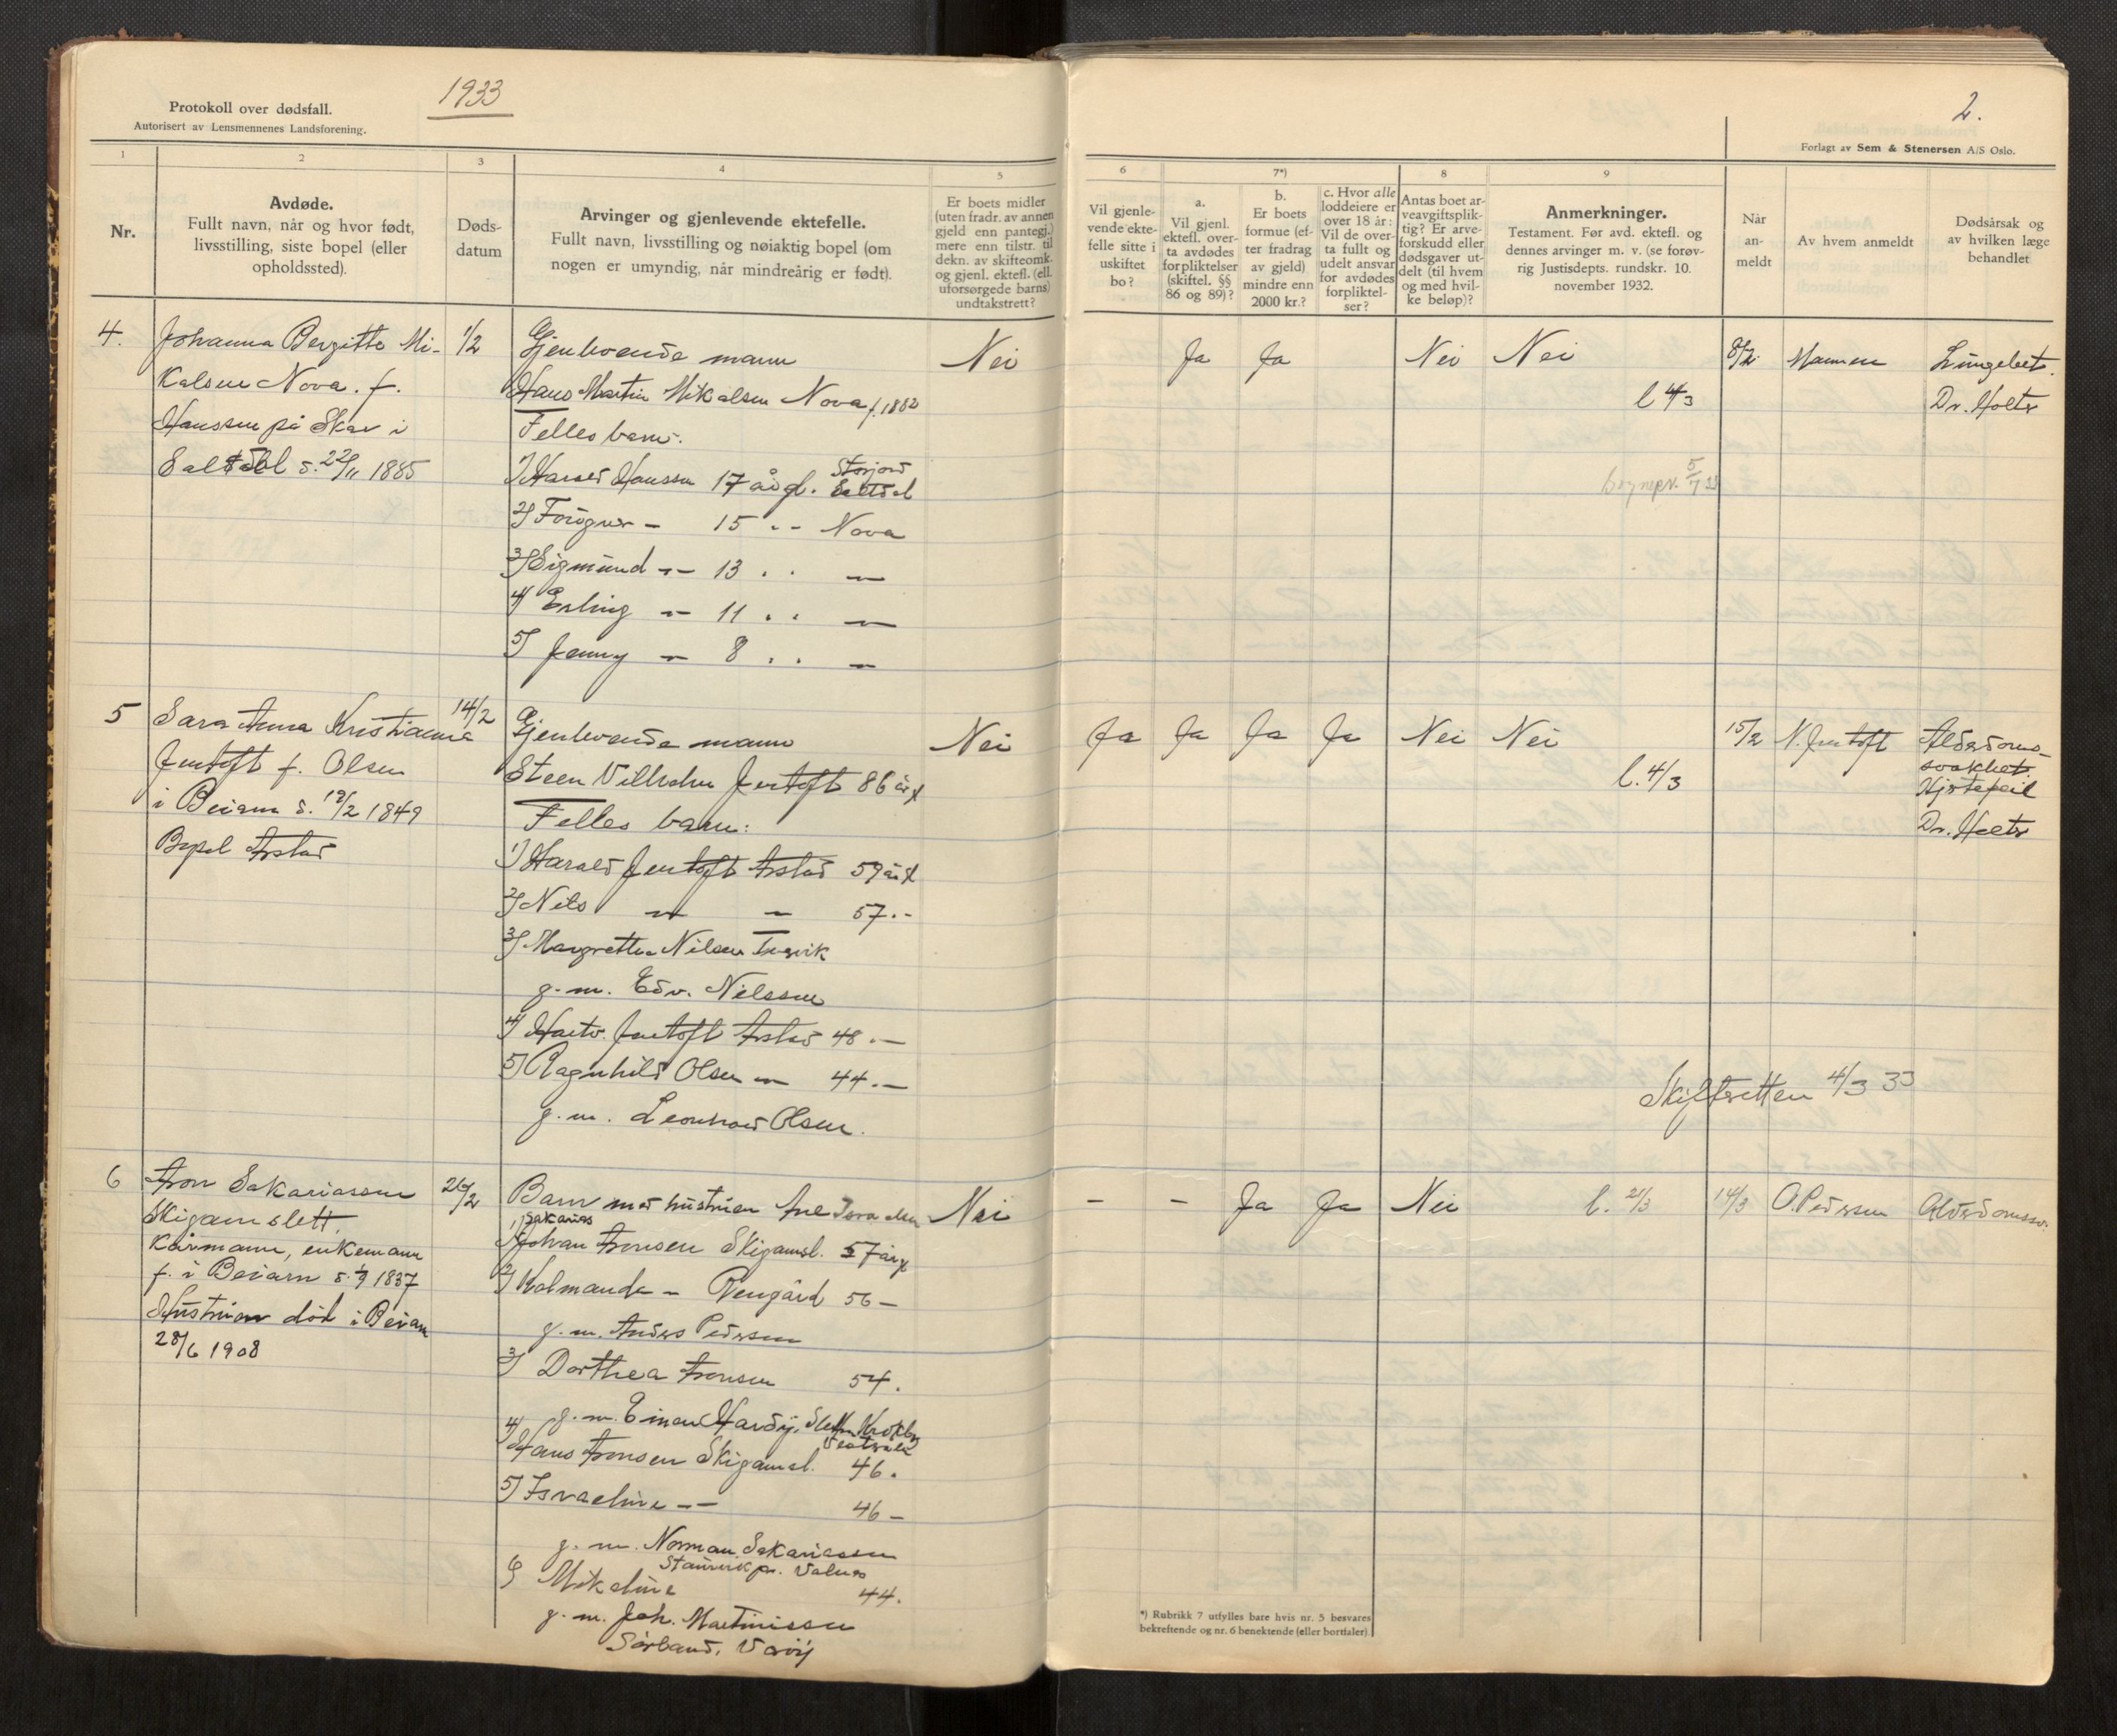 1933
Protokoll over dødsfall.
Autorisert av Lensmennenes Landsforening.
1
2
3
4
5
Nr.
Avdøde.
Fullt navn, når og hvor født,
livsstilling, siste bopel (eller
opholdssted).
Døds-
datum
Arvinger og gjenlevende ektefelle.
Fullt navn, livsstilling og nøiaktig bopel (om
nogen er umyndig, når mindreårig er født).
Er boets midler
(uten fradr. av annen
gjeld enn pantegj.)
mere enn tilstr. til
dekn. av skifteomk.
og gjenl. ektefl. (ell.
uforsørgede barns)
undtakstrett?
4.
Johanna Bergitte Mi-
kalsen Nova. f.
Hanssen på Skar i
Saltdal d. 22/11 1885
1/2
Gjenlevende mann
Hans Martin Mikalsen Nova f. 1882
Felles barn.
1) Harald Hanssen 17 år gl. Storjord
Saltdal
2) Torögver - 15 " - Nova
3) Sigmund - 13 . . -
4) Erling - 11 . . -
5) Jenny - 8 . . -
Nei
5
Sara Anna Kristianna
Jentoft f. Olsen
i Beiarn d. 19/2 1849
Bopel Arstad
14/2
Gjenlevende mann
Steen Vilhelm Jentoft 86 år gl
Felles barn:
1) Harald Jentoft Arstad 59 år gl
2) Nils - - 57 . -
3) Margrethe Nilsen Tvervik
g. m. Edv. Nilssen
4) Hartv. Jentoft Arstad 48 . -
5) Ragnhild Olsen - 44 . -
g. m. Leonhard Olsen.
Nei
6
Aron Sakariassen
Skigamslett.
Kårmann, enkemann
f. i Beiarn d. 1/9 1837
Hustruen död i Beiarn
28/6 1908
26/2
Barn med hustruen Ane Israelsen
Sakarias
1) Johan Aronsen Skigamsl. 57 år gl
2) Kolmanda - Vengård 56 -
g. m. Anders Pedersen
3) Dorthea Aronsen 54.
g. m. Einar Hardij,
4) Hans Aronsen Skigamsl. 46.
5) Israeline - - 46 -
g. m. Norman Sakariassen
Staurvik pr. Valnes
6) Mikaline 44.
g. m. Joh. Martinissen
Sörland, Væröy
Nei
2.
Forlagt av Sem & Stenersen A/S Oslo.
6
7*)
8
9
Vil gjenle-
vende ekte-
felle sitte i
uskiftet
bo?
a.
Vil gjenl.
ektefl. over-
ta avdødes
forpliktelser
(skiftel. §§
86 og 89)?
b.
Er boets
formue (ef-
ter fradrag
av gjeld)
mindre enn
2000 kr.?
c. Hvor alle
loddeiere er
over 18 år:
Vil de over-
ta fullt og
udelt ansvar
for avdødes
forpliktel-
ser?
Antas boet ar-
veavgiftsplik-
tig? Er arve-
forskudd eller
dødsgaver ut-
delt (til hvem
og med hvil-
ke beløp)?
Anmerkninger.
Testament. Før avd. ektefl. og
dennes arvinger m. v. (se forøv-
rig Justisdepts. rundskr. 10.
november 1932.
Når
an-
meldt
Av hvem anmeldt
Dødsårsak og
av hvilken læge
behandlet
Ja Ja Nei Nei 8/2 Mannen Lungebet.
l 4/3 Dr. Holter
5/7 33
Ja Ja Ja Ja Nei Nei 15/2 N. Jentoft Alderdoms-
svakhet
l. 4/3 Hjertefeil
Dr. Holter
Skifteretten 4/3 33
- - Ja Ja Nei l. 21/3 14/3 O. Pedersen Alderdomssv.
*) Rubrikk 7 utfylles bare hvis nr. 5 besvares
bekreftende og nr. 6 benektende (eller bortfaler)